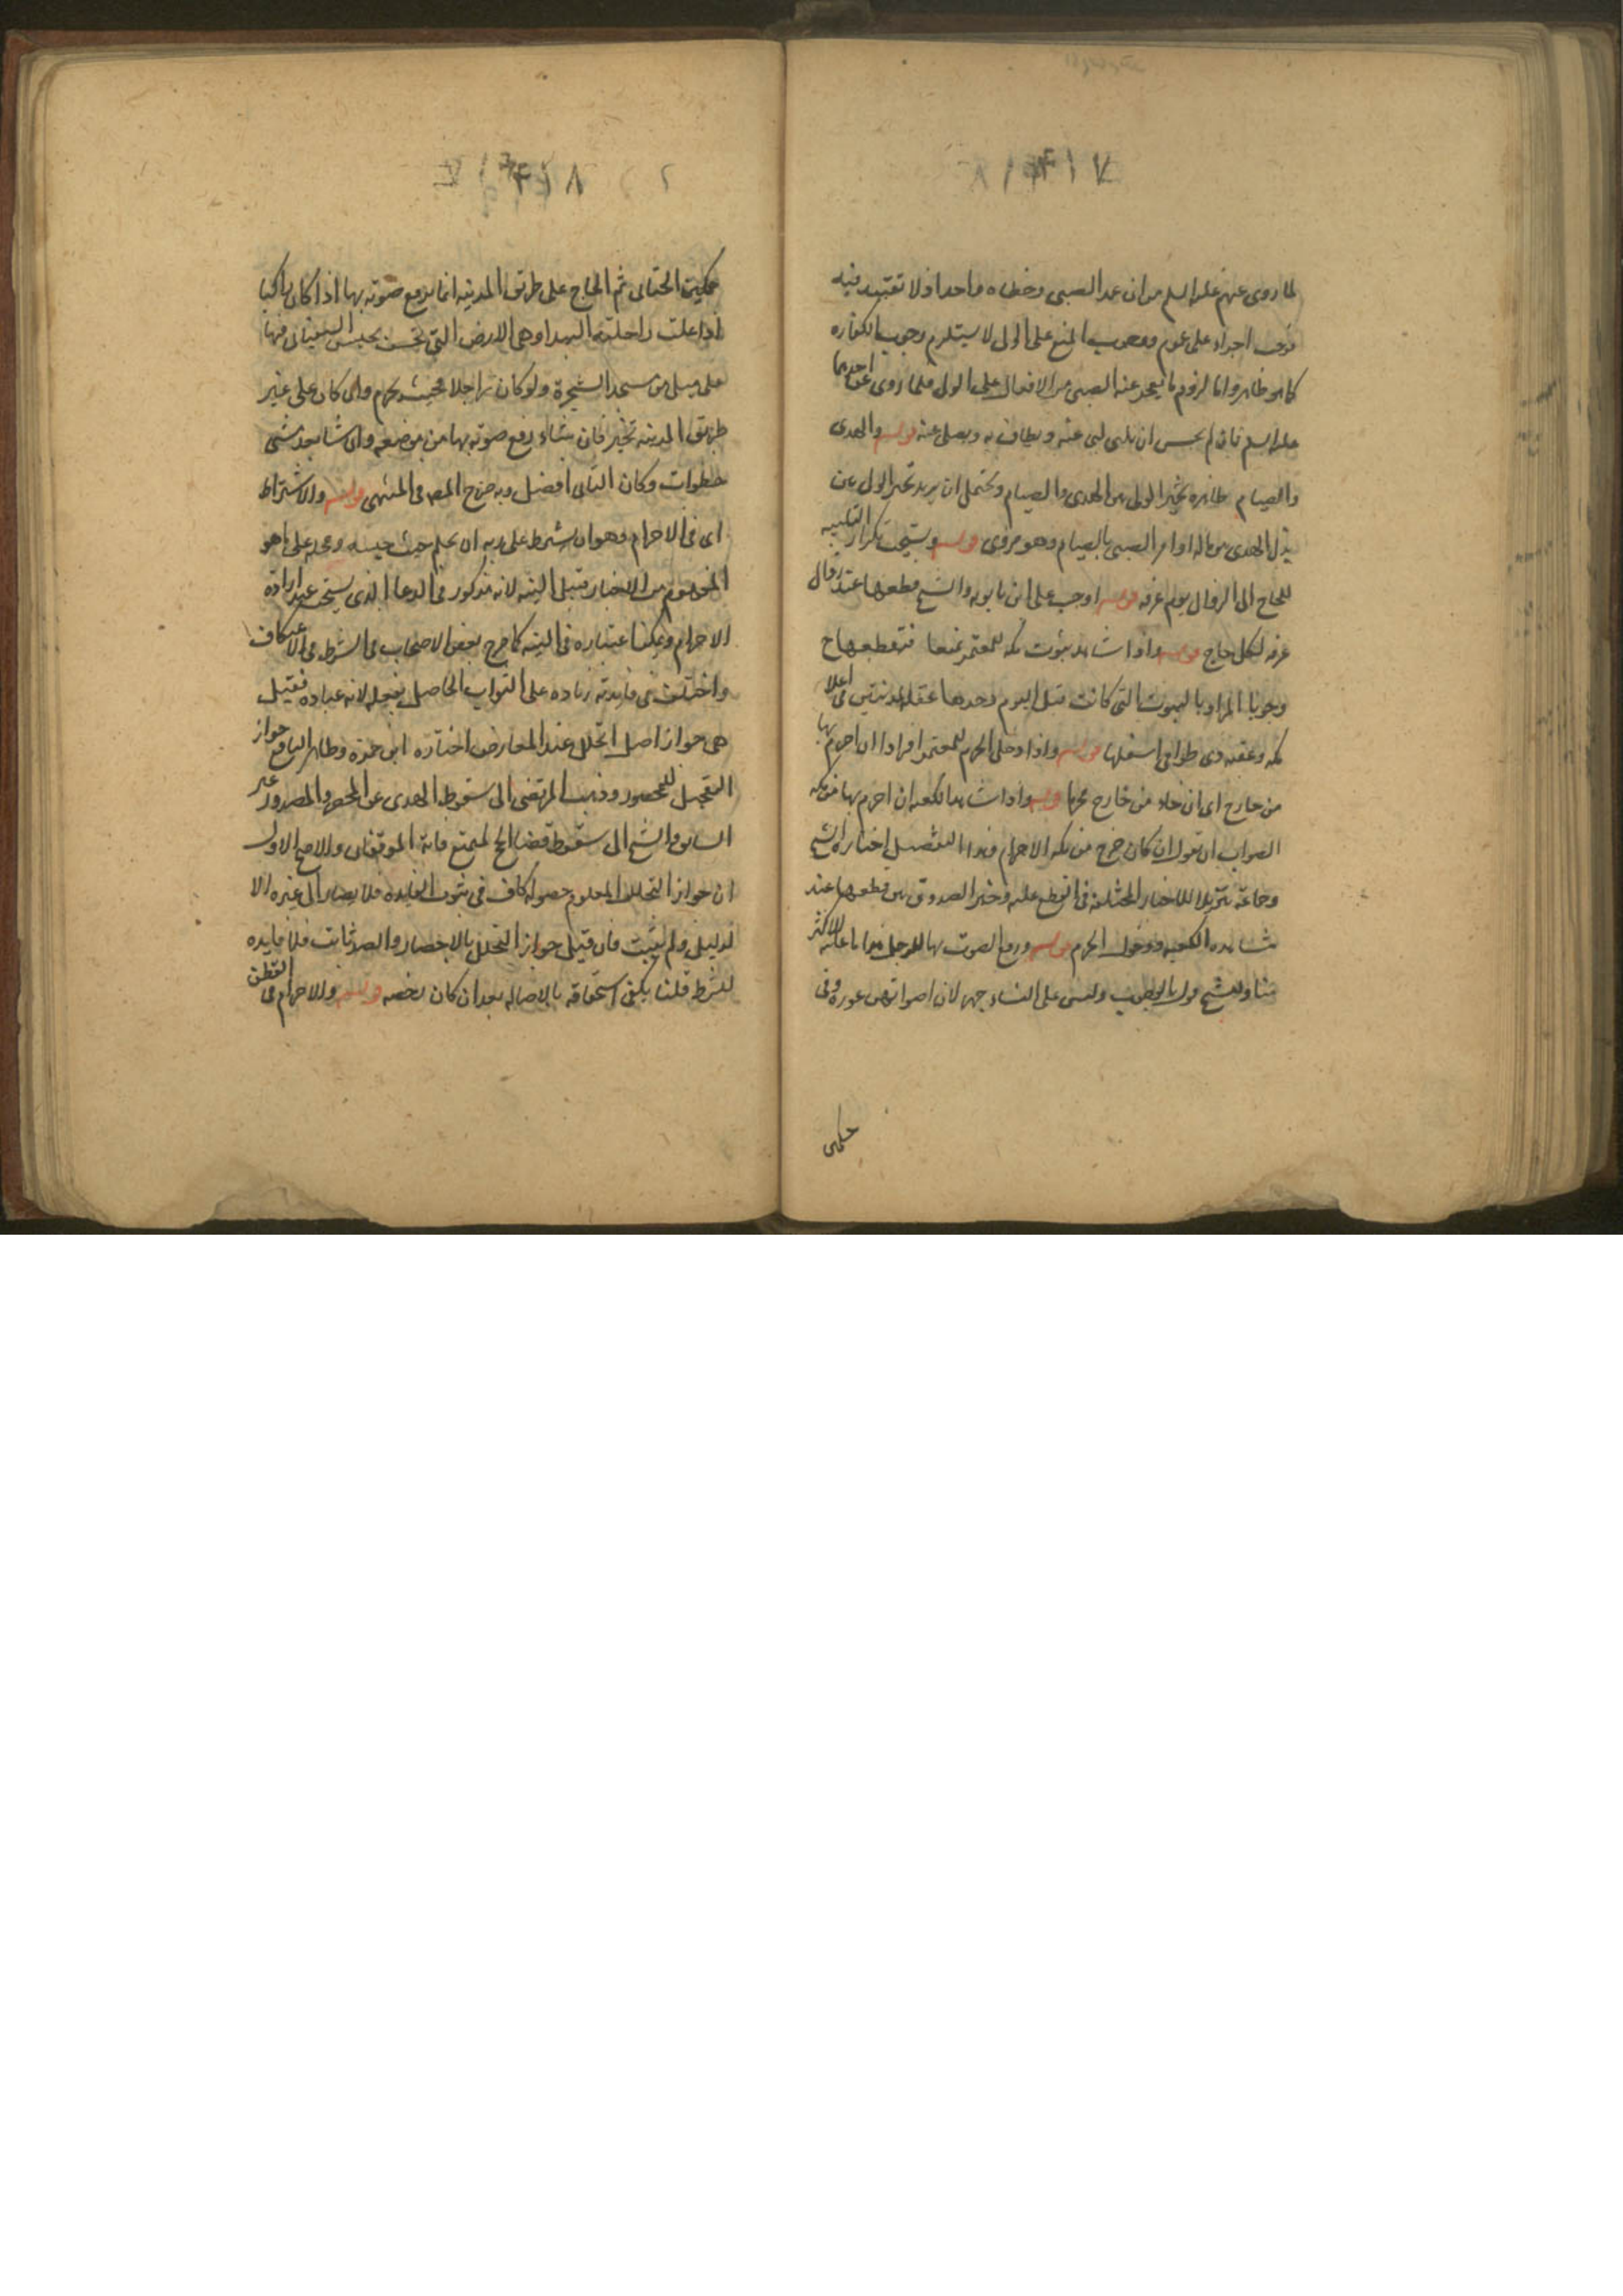 ١٤١٧
لما روى عنهم عليهم السلم من ان عمد الصبى وخطاه واحد اذ لا تقييد فيه
فوجب اجراه على عمومه ووجوب المنع على الولى لا يستلزم وجوب الكفاره
كما هو ظاهر واما لزوم ما يعجز عنه الصبى من الافعال على الولى فلما روى عن احدهما
عليهما السلم فان لم يحسن ان يلبى لبى عنه ويطاف به ويصلى عنه قوله والهدى
والصيام ظاهره تخير الولى بين الهدى والصيام ويحتمل ان يريد تخير الولى بين
بذل الهدى من ماله او امر الصبى بالصيام وهو مروى قوله ويستحب تكرار التلبيه
للحاج الى الزوال يوم عرفه قوله اوجب على ابن بابويه والشيخ قطعها عند زوال
عرفه لكل حاج قوله واذا شاهد بيوت مكه للمعتمر تمتعا فتقطعها ح
وجوبا المراد بالبيوت التى كانت قبل اليوم وحدها عقبة المدنيين فى اعلا
مكه وعقبه ذى طوى فى اسفلها قوله واذا دخل الحرم للمعتمر افرادا ان احرم بها
من خارج اى ان جاء من خارج محرما قوله واذا شاهد الكعبه ان احرم بها من مكه
الصواب ان تقول ان كان خرج من مكه للاحرام وهذا التفصيل اختاره الشيخ
وجماعة تنزيلا للاخبار المختلفة فى القطع عليه وخير الصدوق بين قطعها عند
مشاهده الكعبه ودخول الحرم قوله ورفع الصوت بها للرجل هذا ما عليه الاكثر
منا وللشيخ قول بالوجوب وليس على النساء جهر لان اصواتهن عوره وفى
حكمهن
١٤١٨
حكمهن الخناثى ثم الحاج على طريق المدينه انما يرفع صوته بها اذا كان راكبا
اذا علت راحلته البيدا وهى الارض التى تخسف بجيش السفيانى فيها
على ميل من مسجد الشجرة ولو كان راجلا فحيث يحرم وان كان على غير
طريق المدينه تخير فان شاء رفع صوته بها من موضعه وان شا بعد مشى
خطوات وكان الثانى افضل وبه صرح المص فى المنتهى قوله والاشتراط
اى فى الاحرام وهو ان يشترط على ربه ان يحله حيث حبسه ومحله على ما هو
المفهوم من الاخبار قبل النيه لانه مذكور فى الدعا الذى يستحب عند ارادة
الاحرام ويمكن اعتباره فى النيه كما صرح بعض الاصحاب فى الشرط فى الاعتكاف
واختلف فى فايدته زياده على الثواب الحاصل بفعله لانه عباده فقيل
هى جواز اصل التحلل عند العارض اختاره ابن حمزه وظاهر النافع جواز
التعجيل للمحصور وذهب المرتضى الى سقوط الهدى عن المحصر والمصدود غير
السايق والشيخ الى سقوط قضا الحج لمتمتع فاته الموقفان والاصح الاول
ان جواز التحلل المعلوم حصوله كاف فى ثبوت الفايده فلا يصار الى غيره الا
لدليل ولم يثبت فان قيل جواز التحلل بالاحصار والصد ثابت فلا فايده
للشرط قلنا يكفى استحقاقه بالاصاله بعد ان كان رخصه قوله والاحرام فى القطن